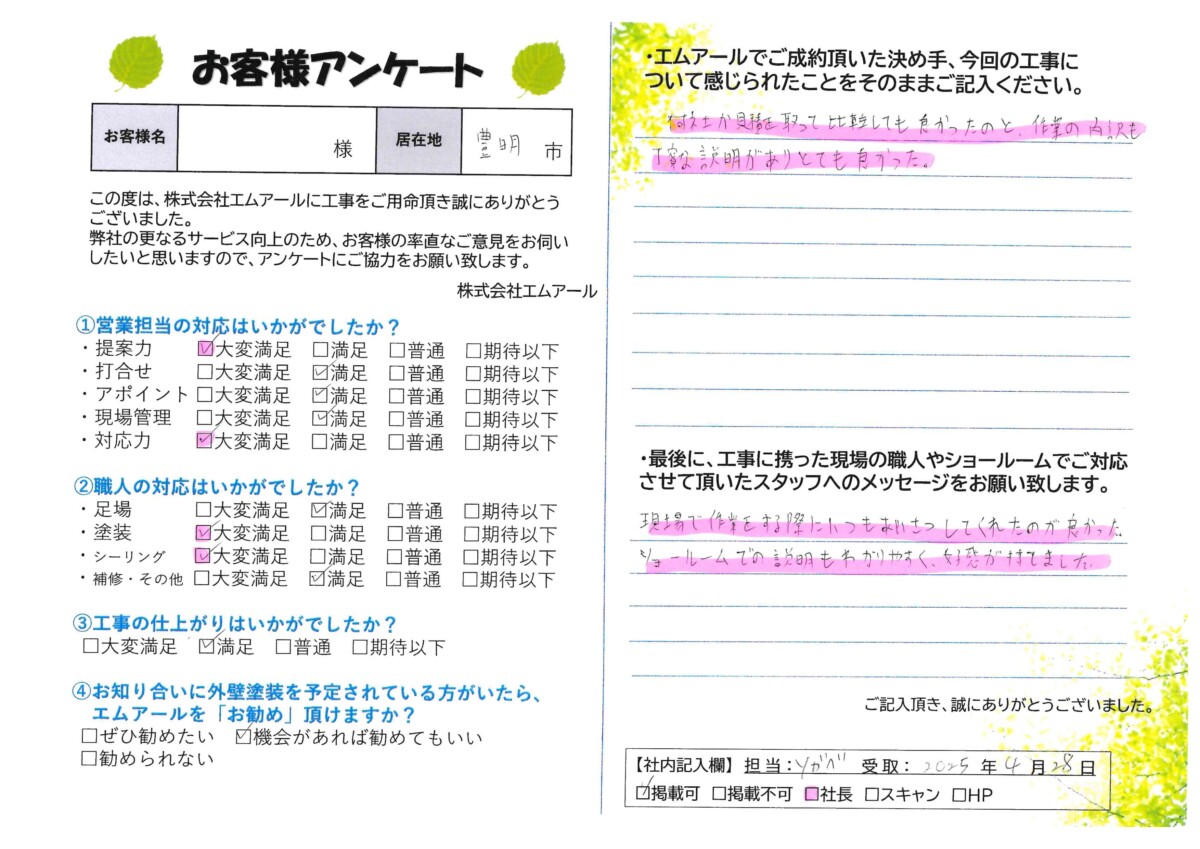 お客様アンケート
お客様名 様 居在地 豊明 市
この度は、株式会社エムアールに工事をご用命頂き誠にありがとう
ございました。
弊社の更なるサービス向上のため、お客様の率直なご意見をお伺い
したいと思いますので、アンケートにご協力をお願い致します。
株式会社エムアール
①営業担当の対応はいかがでしたか？
・提案力 ☑大変満足 □満足 □普通 □期待以下
・打合せ □大変満足 ☑満足 □普通 □期待以下
・アポイント □大変満足 ☑満足 □普通 □期待以下
・現場管理 □大変満足 ☑満足 □普通 □期待以下
・対応力 ☑大変満足 □満足 □普通 □期待以下
②職人の対応はいかがでしたか？
・足場 □大変満足 ☑満足 □普通 □期待以下
・塗装 ☑大変満足 □満足 □普通 □期待以下
・シーリング ☑大変満足 □満足 □普通 □期待以下
・補修・その他 □大変満足 ☑満足 □普通 □期待以下
③工事の仕上がりはいかがでしたか？
□大変満足 ☑満足 □普通 □期待以下
④お知り合いに外壁塗装を予定されている方がいたら、
エムアールを「お勧め」頂けますか？
□ぜひ勧めたい ☑機会があれば勧めてもいい
□勧められない
・エムアールでご成約頂いた決め手、今回の工事に
ついて感じられたことをそのままご記入ください。
見積を取って比較しても良かったのと、作業の内訳も
丁寧な説明がありとても良かった。
・最後に、工事に携った現場の職人やショールームでご対応
させて頂いたスタッフへのメッセージをお願い致します。
現場で作業をする際にいつもあいさつしてくれたのが良かった
ショールームでの説明もわかりやすく、好感が持てました。
ご記入頂き、誠にありがとうございました。
【社内記入欄】 担当： 受取： 2025 年 4 月 28 日
☑掲載可 □掲載不可 □社長 □スキャン □HP